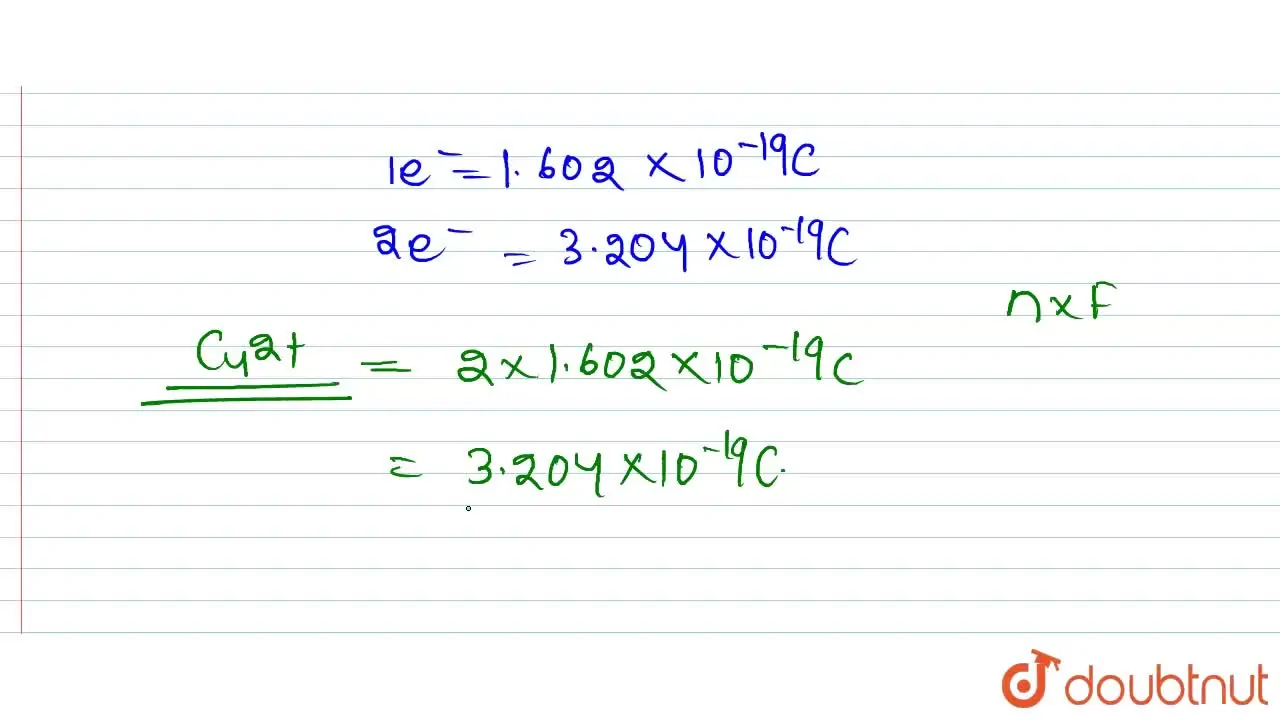 1e⁻ = 1.602 × 10⁻¹⁹C
2e⁻ = 3.204 × 10⁻¹⁹C
n × F
Cu2+ = 2 × 1.602 × 10⁻¹⁹C
= 3.204 × 10⁻¹⁹C.
doubtnut